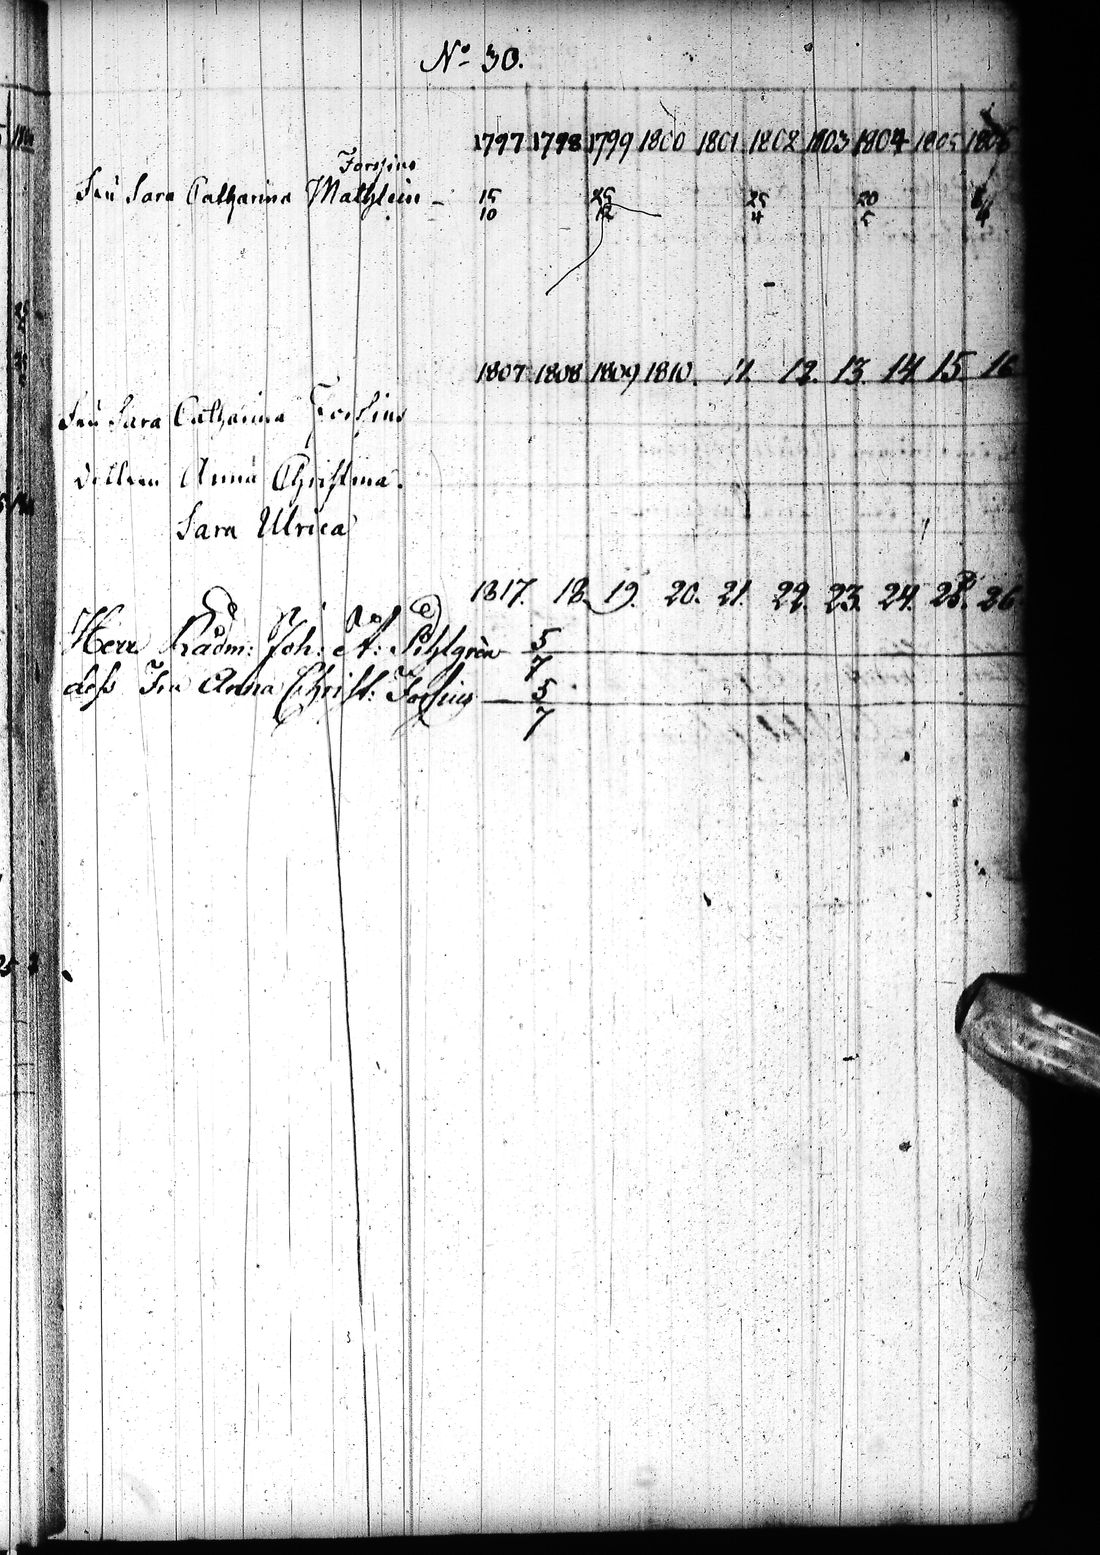 No 30.
1797 1798 1799 1800 1801 1802 1803 1804 1805 1806
Forssius
Fru Sara Catharina Mathlein - 15 25 25 20
10 12 4 5 4
1807 1808 1809 1810. 11. 12. 13. 14 15 16
Fru Sara Catharina Forssius
Dottren Anna Christina.
Sara Ulrica
1817. 18. 19. 20. 21. 22. 23. 24. 25. 26
Herr Rådm: Joh: A: Pihlgrén 5
7
dess Fru Anna Christ: Forssius 5
7